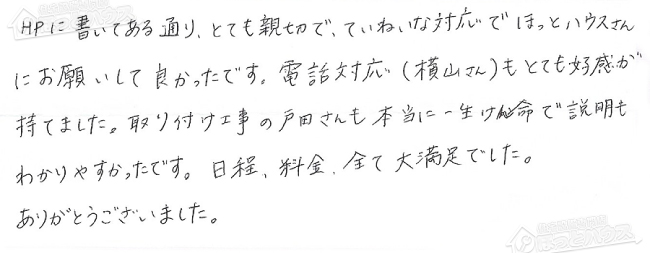 HPに書いてある通り、とても親切で、ていねいな対応でほっとハウスさん
にお願いして良かったです。電話対応(横山さん)もとても好感が
持てました。取り付け工事の戸田さんも本当に一生けん命で説明も
わかりやすかったです。日程、料金、全て大満足でした。
ありがとうございました。